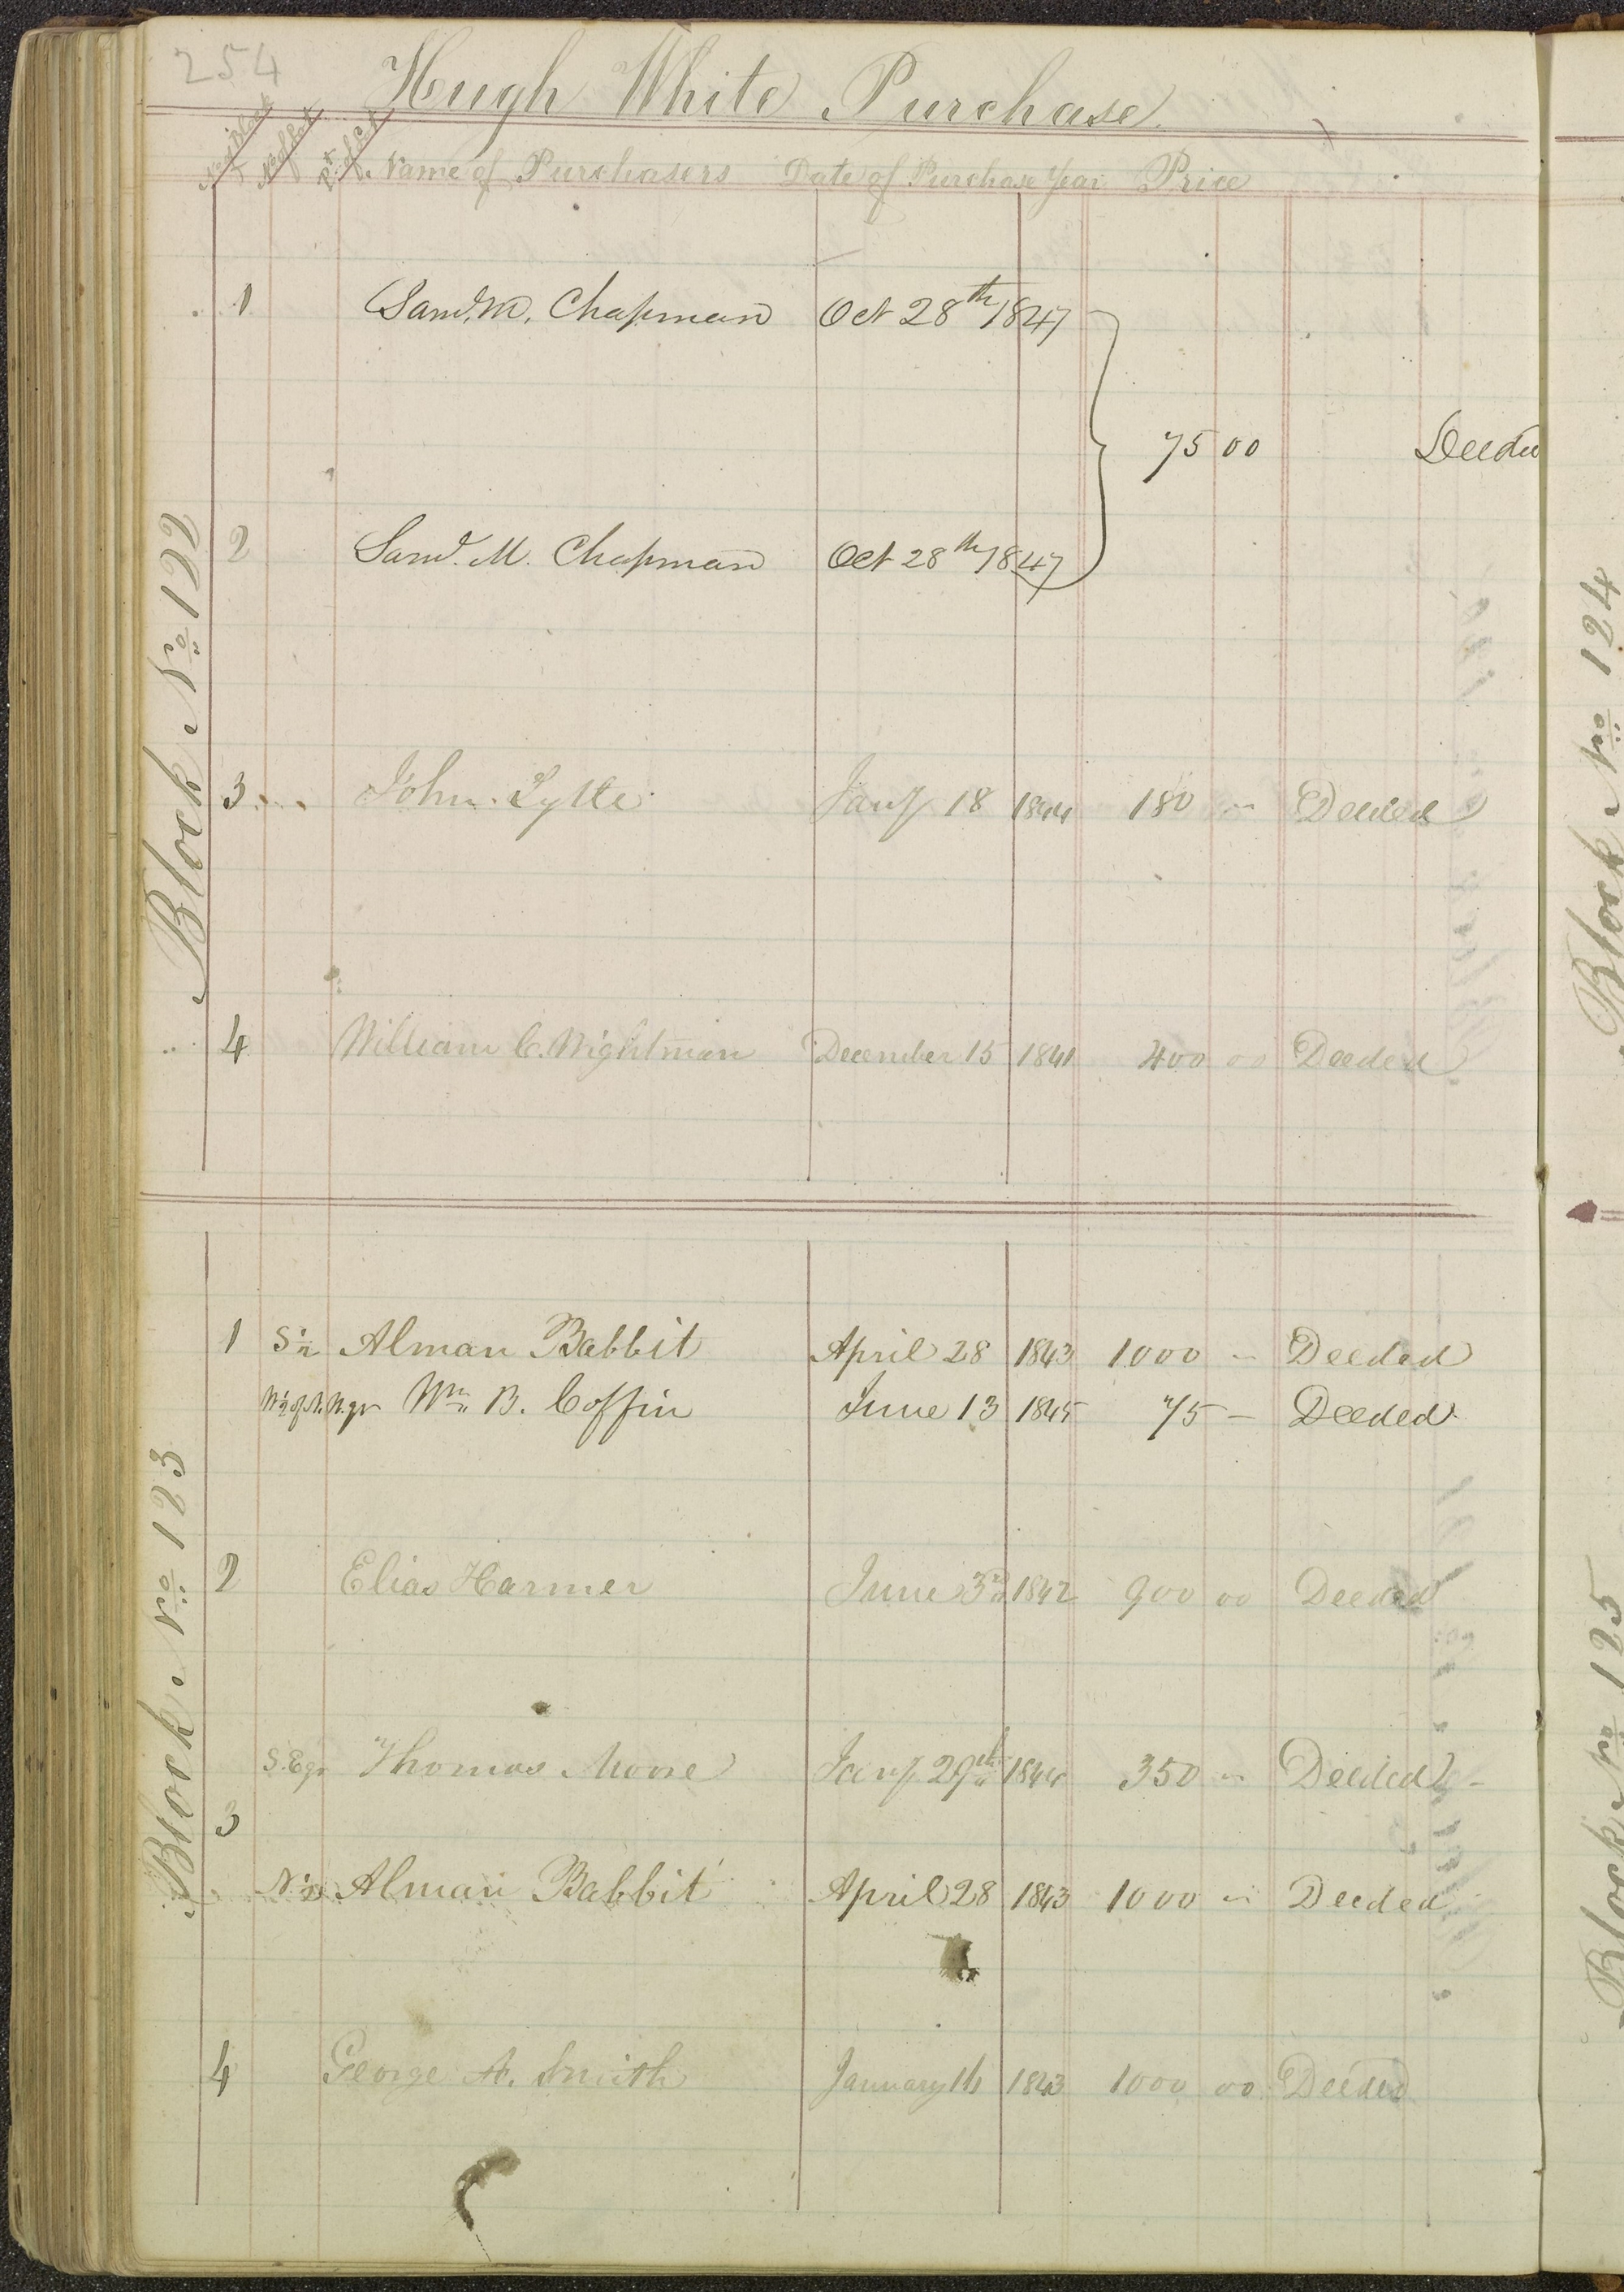 254
Hugh White Purchase.
No of Block No of Lot Pt of Lot Name of Purchasers Date of Purchase Year Price
Block No. 122
1 Saml. M. Chapman Oct 28th 1847
75 00 Deeded
2 Saml. M. Chapman Oct 28th 1847
3 John Lytle Jany 18 1844 180 " Deeded
4 William C. Wightman December 15 1841 400 00 Deeded
Block No. 123
1 S ½ Alman Babbit April 28 1843 1000 – Deeded
W ½ of N.W. qr Wm B. Coffin June 13 1845 75 – Deeded
2 Elias Harmer June 3rd 1842 900 00 Deeded
S.E qr Thomas Moore Jany 29th 1844 350 " Deeded –
3
N ½ Alman Babbit April 28 1843 1000 " Deeded
4 George A. Smith January 16 1843 1000 00 Deeded
Block No. 124
Block No. 125